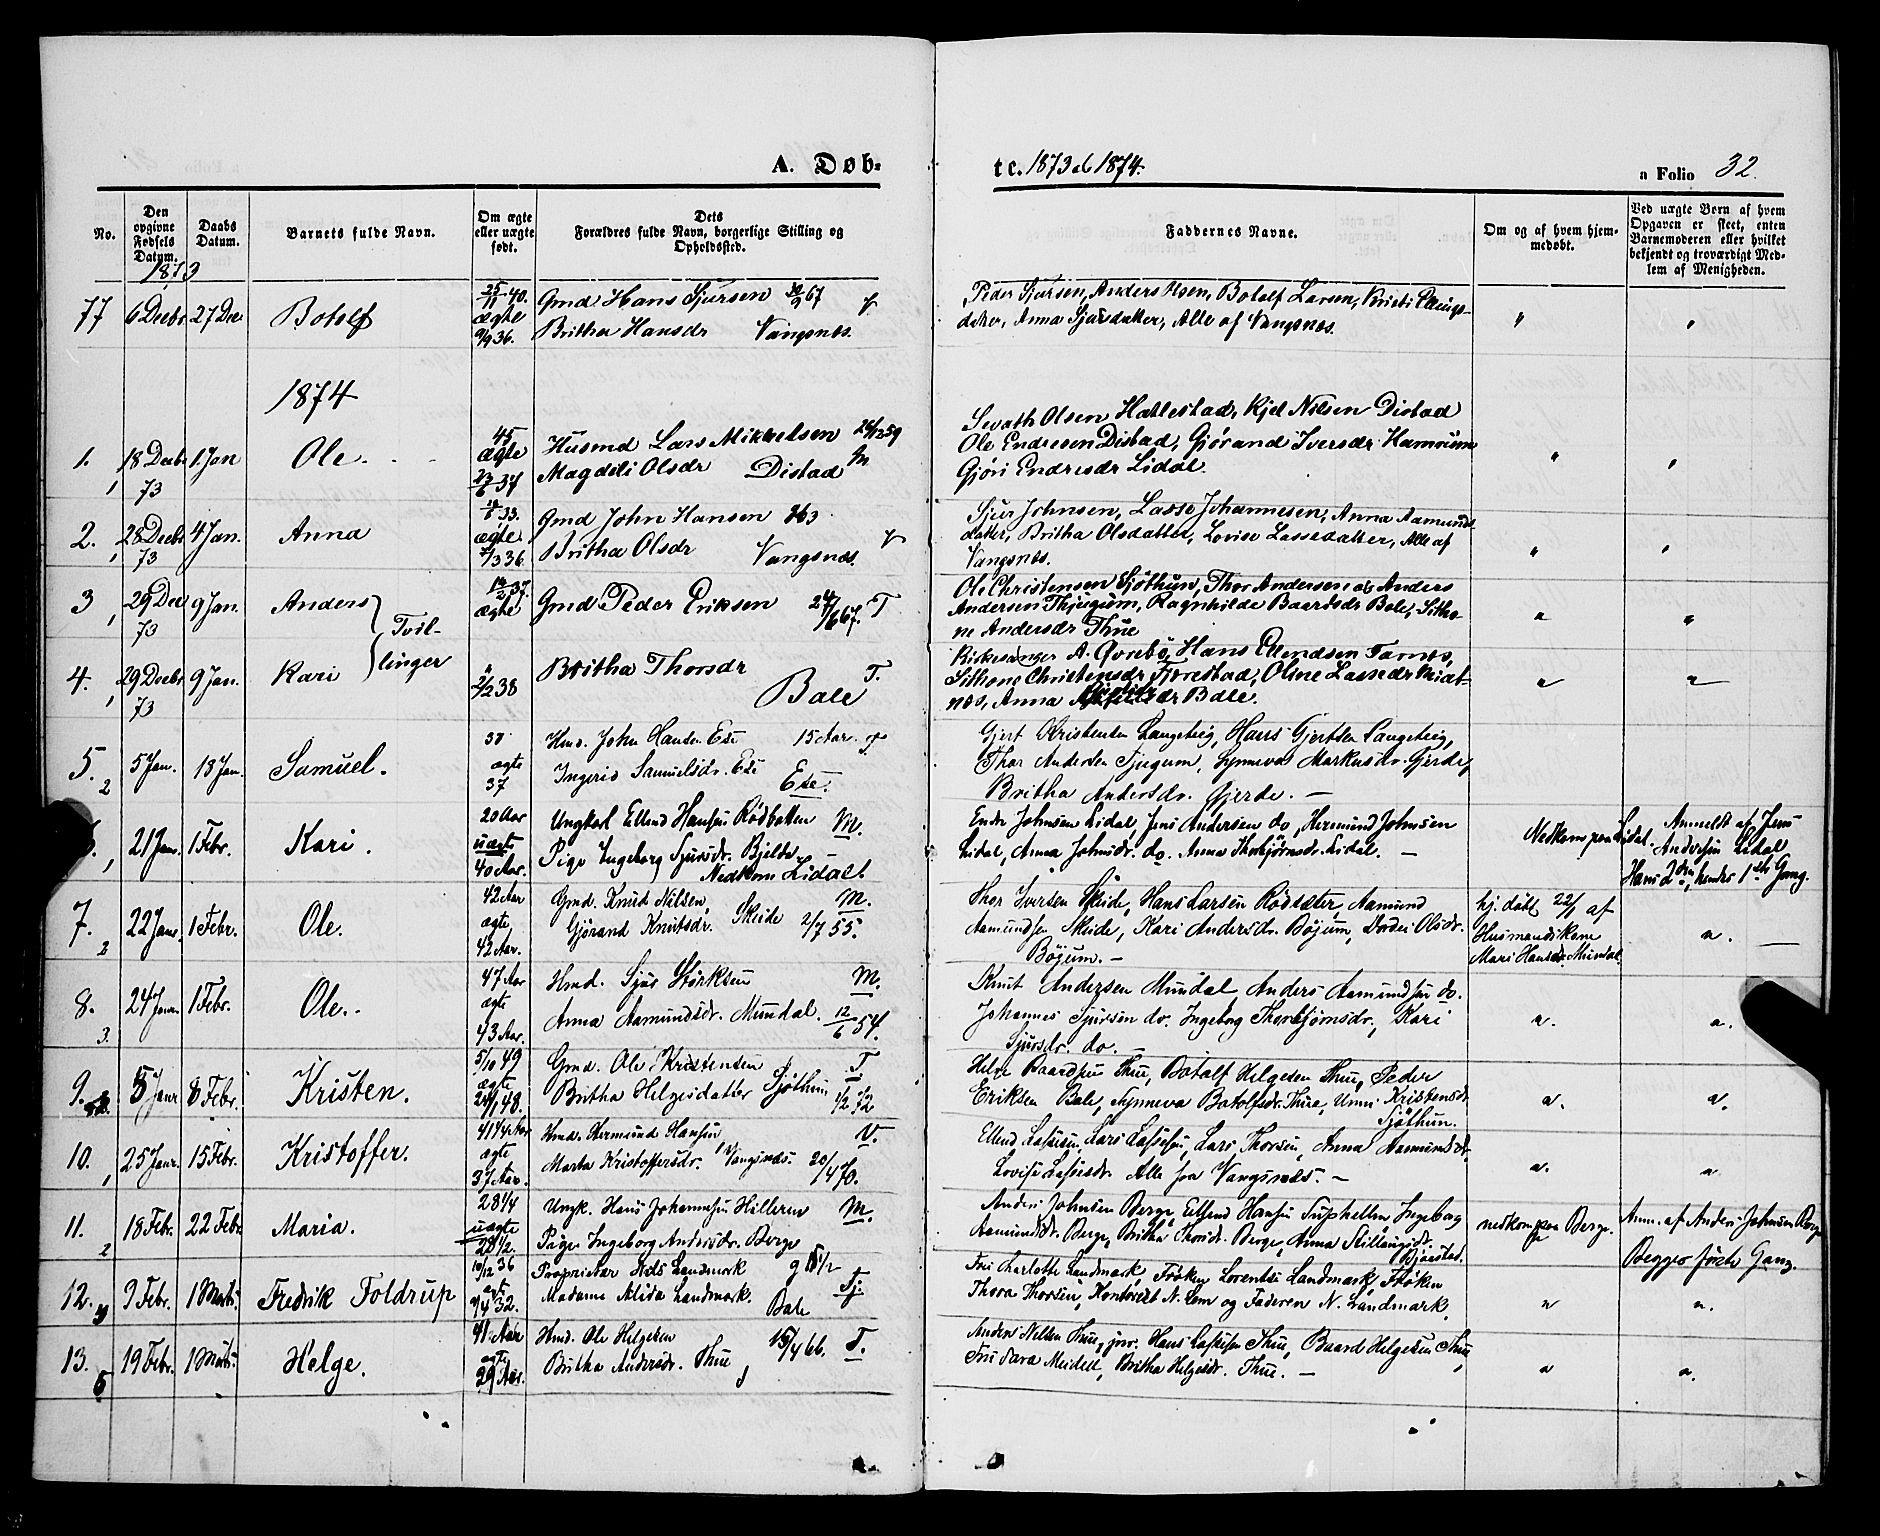 A. Døb-
tc. 1873 &amp; 1874.
a Folio 32.
No.
Den opgivne Fødsels Datum.
Daabs Datum.
Barnets fulde Navn.
Om ægte eller uægte født.
Dets Forældres fulde Navn, borgerlige Stilling og Opholdssted.
Faddernes Navne.
Om og af hvem hjemmedøbt.
Ved uægte Børn af hvem Opgaven er skeet, enten Barnemoderen eller hvilket bekjendt og troværdigt Medlem af Menigheden.
1873
77 6 Decbr 27 Dec Botolf
25/11 40. ægte 9/9 36.
Gmd Hans Sjursen 30/9 67 V
Britha Hansdr Vangsnæs.
Peder Sjursen, Anders Olsen, Botolf Larsen, Kristi Ellings-
datter, Anna Sjursdatter, Alle af Vangsnæs.
" "
1874
1. 18 Decbr 73 1 Jan Ole.
45 ægte 37
Husmd Lars Mikkelsen 59 M
Magdeli Olsdr Distad
Sevath Olsen Hatlestad, Kjel Nilsen Distad
Ole Endresen Distad, Gjørand Iversdr Hamrum
Gjøri Endresdr Lidal.
" "
2. 28 Decbr 73 4 Jan. Anna
33. ægte 36
Gmd John Hansen 63 V
Britha Olsdr Vangsnæs.
Sjur Johnsen, Lasse Johannesen, Anna Aamunds-
datter, Britha Olsdatter, Lovise Lassedatter, Alle af
Vangsnæs.
" "
3 29 Dec 73 9 Jan. Anders
Tvil-
linger
37. ægte
Gmd Peder Eriksen 24/6 67. T
Ole Christensen Sjøthun, Thor Andersen og Anders
Andersen Thjugum, Ragnhilde Baardsdr Bale, Sitho-
ne Andersdr Thue
" "
4. 29 Decbr 73 9 Jan. Kari
" 2/2 38
Britha Thorsdr T.
Bale
Kirkesanger A. Øvrebø, Hans Ellendsen Farnes,
Sithone Christensdr Fjørestad, Oline Lassedr
næs, Anna Bale.
" "
5. 2 5 Jan. 18 Jan. Samuel.
38 ægte 37
Hmd. John Hansen Ese 15 Aar. T
Ingerid Samuelsdr. Ese Ese.
Gjert Kristensen Langeteig, Hans Gjertsen Langeteig,
Thor Andersen Tjugum, Synneva Markusdr. Gjerde,
Britha Andersdr. Gjerde. —
21 Jan. 1 Febr. Kari.
20 Aar uægte 40 Aar.
Ungkarl Ellend Hansen Rødbotten M.
Pige Ingeborg Sjursdr. Bjelde
Nedkom Lidal
Endre Johnsen Lidal, Jens Andersen do, Hermund Johnsen
Lidal, Anna Johnsdr. do. Anna Thorbjørnsdr. Lidal. —
Nedkom paa Lidal.
Anmeldt af Jens
Andersen Lidal
Hans 2den, hendes 1ste Gang.
7. 2 22 Janr. 1 Febr. Ole.
42 Aar ægte 42 Aar.
Gmd. Knud Nilsen, M.
Gjørand Knutsdr. Skeide 2/7 55.
Thor Iversen Skeide, Hans Larsen Rødseter, Aamund
Aamundsen Skeide, Kari Andersdr. Bøjum, Dordei Olsdr.
Bøjum. —
hj. døbt 22/1 af
Husmandskone
Mari Hansdr. Mundal.
" —
8. 3. 24 Janr. 1 Febr. Ole.
47 Aar ægte 43 Aar.
Hmd. Sjur Størksen M.
Anna Aamundsdr. Mundal. 12/6 54.
Knut Andersen Mundal, Anders Aamundsen do.
Johannes Sjursen do. Ingeborg Thorbjørnsdr., Kari
Sjursdr. do. —
" "
9. 5 Janr 8 Febr. Kristen.
5/10 49 ægte 24/1 48.
Gmd. Ole Kristensen T
Britha Helgesdatter Sjøthun 1/2 72
Helge Baardsen Thue, Botolf Helgesen Thue, Peder
Eriksen Bale, Synneva Botolfsdr. Thue, Unni Kristensdr.
Sjøthun.
" "
10. 25 Janr. 15 Febr. Kristoffer.
41 1/4 Aar ægte 37 Aar.
Hmd. Hermund Hansen V.
Marta Kristoffersdr. Vangsnæs. 20/4 70.
Ellend Lassesen, Lars Lassesen, Lars Thorsen, Anna Aamundsdr.
Lovise Lassesdr. Alle fra Vangsnæs. —
" "
11. 2 18 Febr. 22 Febr Maria.
28 1/4 uægte 28 1/2.
Ungk. Hans Johannesen Hilleren M.
Pige Ingeborg Andersdr. Berge
Anders Johnsen Berge, Ellend Hansen Suphellen, Ingeborg
Aamundsdr. Berge, Britha Thorsdr. Berge, Anna Stillaugsdr.
Bjåstad.
nedkom paa Berge.
Anm. af Anders Johnsen Berge
Begges første Gang.
12. 9 Febr. 1 Marts Fredrik Foldrup
10/12 36 ægt. 9/4 32.
Proprietær Nils Landmark g 15/2
Madame Alida Landmark. Bale Tj.
Fru Charlotte Landmark, Frøken Lorentse Landmark, Frøken
Thora Thorsen, Kontorist N. Lem og Faderen N. Landmark.
" "
13. 5 19 Febr. 1 Marts Helge.
41 Aar ægte 29 Aar.
Hmd. Ole Helgesen 15/4 66. T.
Britha Andersdr. Thue
Anders Nilsen Thue, jnr. Hans Lassesen Thue, Baard Helgesen Thue,
Fru Sara Meidell, Britha Helgesdr. Thue. —
" "